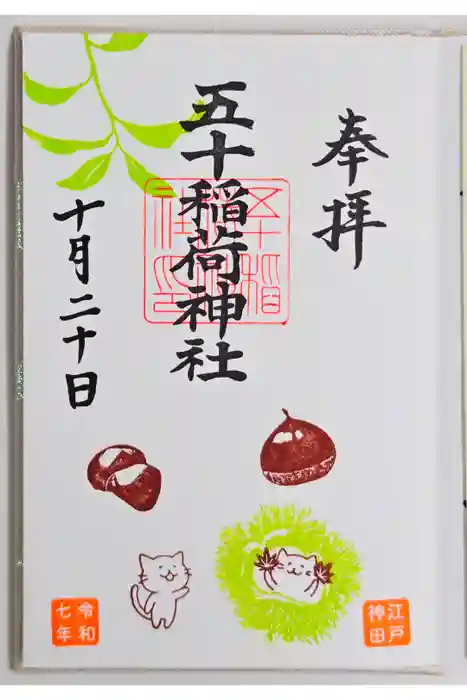 奉拝
五十稲荷神社
十月二十日
江戸
神田
令和
七年